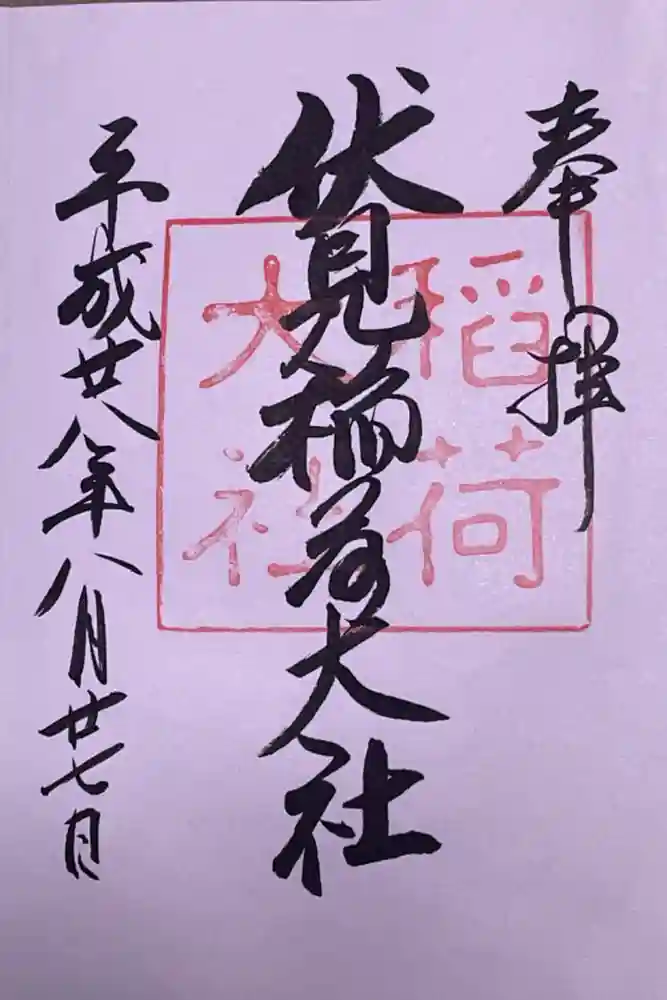 奉拝
伏見稲荷大社
平成廿八年八月廿七日
稲荷
大社